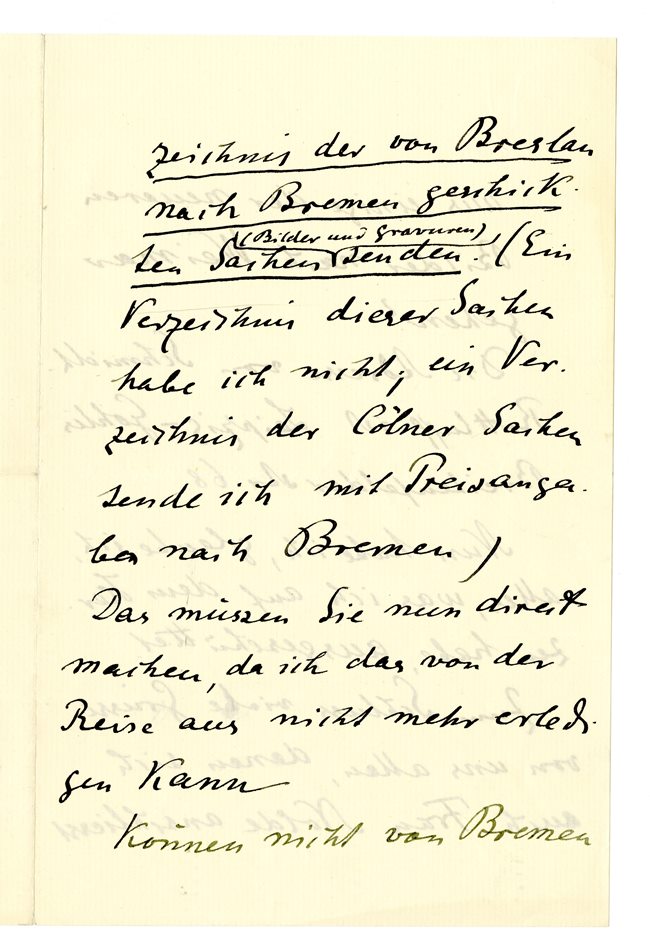 zeichnis der von Breslau
nach Bremen geschick-
(Bilder und Gravuren)
ten Sachen senden. (Ein
Verzeichnis dieser Sachen
habe ich nicht; ein Ver-
zeichnis der Cölner Sachen
sende ich mit Preisanga-
ben nach Bremen)
Das müssen Sie nun direkt
machen, da ich das von der
Reise aus nicht mehr erledi-
gen kann
Können nicht von Bremen